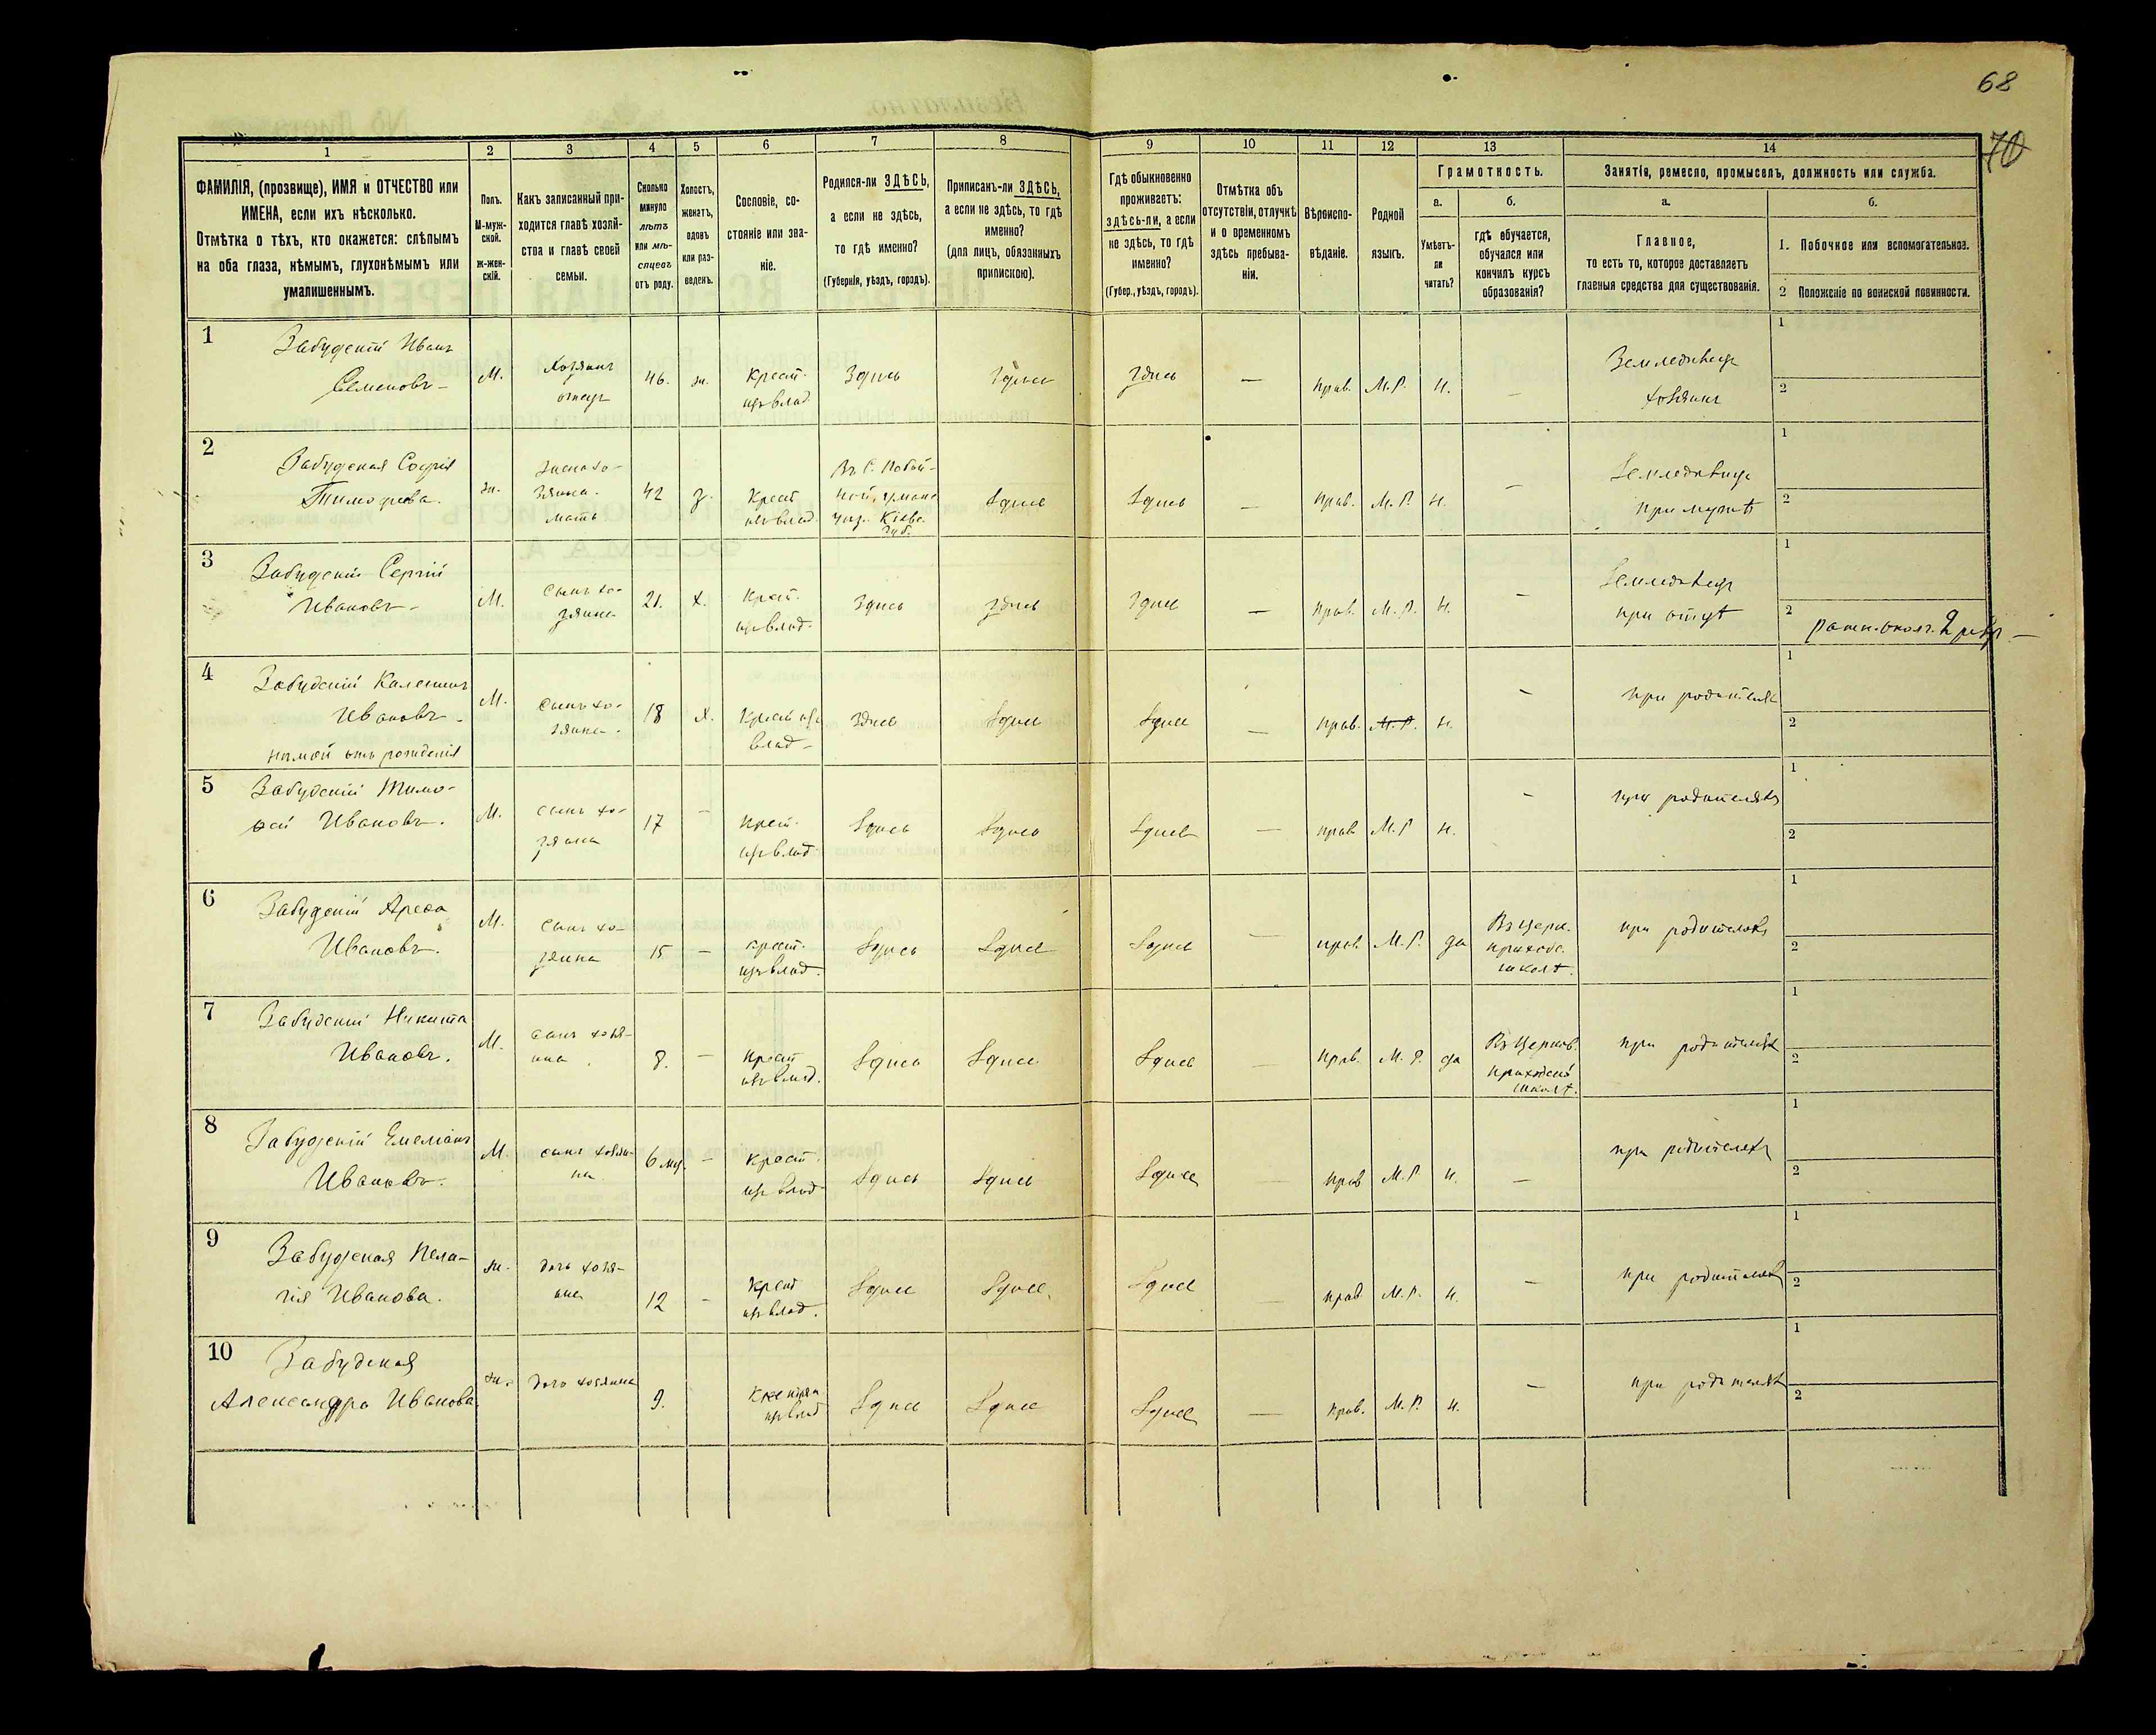 68
70
1
2
3
4
5
6
7
8
9
10
11
12
13
14
ФАМИЛІЯ, (прозвище), ИМЯ и ОТЧЕСТВО или
ИМЕНА, если ихъ нѣсколько.
Отмѣтка о тѣхъ, кто окажется: слѣпымъ
на оба глаза, нѣмымъ, глухонѣмымъ или
умалишеннымъ.
Полъ.
М-муж-
ской.
Ж-жен-
скій.
Какъ записанный при-
ходится главѣ хозяй-
ства и главѣ своей
семьи.
Сколько
минуло
лѣтъ
или мѣ-
сяцевъ
отъ роду.
Холостъ,
женатъ,
вдовъ
или раз-
веденъ.
Сословіе, со-
стояніе или зва-
ніе.
Родился-ли ЗДѢСЬ,
а если не здѣсь,
то гдѣ именно?
(Губернія, уѣздъ, городъ).
Приписанъ-ли ЗДѢСЬ,
а если не здѣсь, то гдѣ
именно?
(для лицъ, обязанныхъ
припискою).
Гдѣ обыкновенно
проживаетъ:
здѣсь-ли, а если
не здѣсь, то гдѣ
именно?
(Губер., уѣздъ, городъ).
Отмѣтка объ
отсутствіи, отлучкѣ
и о временномъ
здѣсь пребыва-
ніи.
Вѣроиспо-
вѣданіе.
Родной
языкъ.
Грамотность.
а.
Умѣетъ-
ли
читать?
б.
гдѣ обучается,
обучался или
кончилъ курсъ
образованія?
Занятія, ремесло, промыселъ, должность или служба.
а.
Главное,
то есть то, которое доставляетъ
главныя средства для существованія.
б.
1. Побочное или вспомогательное.
2 Положеніе по воинской повинности.
1
Забудскій Иванъ
Семеновъ
М.
Хозяинъ
отецъ
46.
ж.
Крест.
изъ влад.
Здись
Здись
Здись
—
прав.
М.Р.
н.
—
Земледѣлецъ
хозяинъ
1
2
2
Забудская Софія
Тимофеева.
ж.
жена хо-
зяина.
мать
42
з.
Крест
изъ влад.
Здись
Здись
—
прав.
М.Р.
н.
—
при мужѣ
1
2
3
Забудскій Сергій
Ивановъ
М.
Сынъ хо-
зяина
21.
х.
Крест.
изъ влад.
Здись
Здись
Здись
—
прав.
М.Р.
н.
—
при отцѣ
1
2
4
Забудскій
Ивановъ
нѣмой отъ рожденія
М.
Сынъ хо-
зяина.
18
х.
Крест изъ
влад
Здись
Здись
Здись
—
прав.
М.Р.
н.
—
при родителяхъ
1
2
5
Забудскій Тимо-
фей Ивановъ.
М.
Сынъ хо-
зяина
17
—
Крест.
изъ влад.
Здись
Здись
Здись
—
прав
М.Р
н.
—
при родителяхъ
1
2
6
Забудскій Арефа
Ивановъ.
М.
Сынъ хо-
зяина
15
—
крест.
изъ влад.
Здись
Здись
Здись
—
прав.
М.Р.
да
Въ церк.
приходс.
школѣ.
при родителяхъ
1
2
7
Забудскій Никита
Ивановъ.
М.
сынъ хозя-
ина
8.
—
Крест
изъ влад.
Здись
Здись
Здись
—
прав.
М.Р.
да
Въ Церков.
приходской
школѣ.
при родителяхъ
1
2
8
Забудскій Емеліанъ
Ивановъ.
М.
сынъ хозяи-
на
6 мц.
—
Крест.
изъ влад
Здись
Здись
Здись
—
прав
М.Р
н.
—
при родителяхъ
1
2
9
Забудская Пела-
гія Иванова.
ж.
дочь хозя-
ина
12
—
Крест
изъ влад.
Здись
Здись
Здись
—
прав
М.Р.
н.
—
при родителяхъ
1
2
10
Забудская
Александра Иванова
ж.
дочь хозяина
9.
изъ влад
Здись
Здись
Здись
—
прав.
М.Р.
н.
—
при родителяхъ
1
2